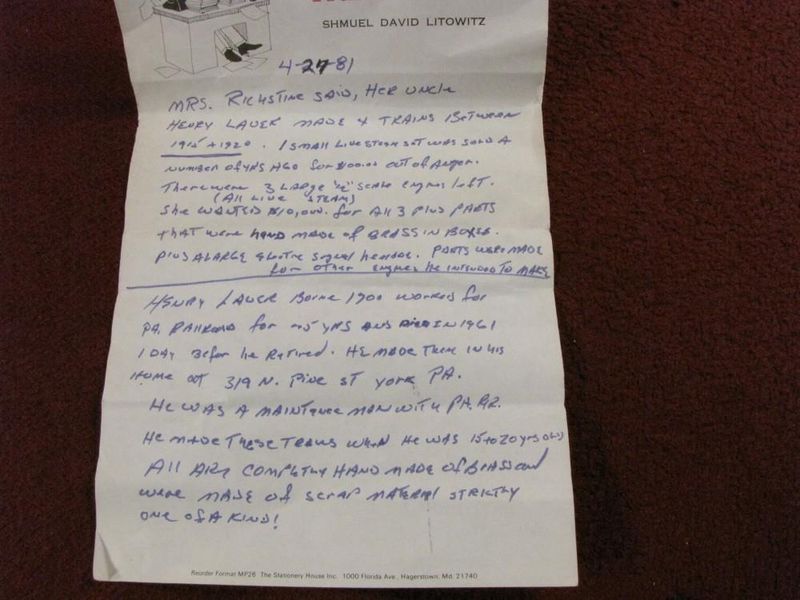 SHMUEL DAVID LITOWITZ
4-27-81
MRS. RICHSTINE SAID, HER UNCLE
HENRY LAUER MADE 4 TRAINS BETWEEN
1915 + 1920. 1 SMALL LIVE STEAM SET WAS SOLD A
NUMBER OF YRS AGO FOR OUT OF ANGER.
THERE WERE 3 LARGE SCALE ENGINES LEFT.
(ALL LIVE STEAM)
SHE WANTED $10,000. FOR ALL 3 PLUS PARTS
THAT WERE HAND MADE OF BRASS IN BOXES.
PLUS A LARGE ELECTRIC SIGNAL. PARTS WERE MADE
FOR OTHER ENGINES HE INTENDED TO MAKE
HENRY LAUER BORNE 1900 WORKED FOR
PA. RAILROAD FOR 45 YRS AND DIED IN 1961
1 DAY BEFOR HE RETIRED. HE MADE THEM IN HIS
HOME AT 319 N. PINE ST YORK PA.
HE WAS A MAN WITH PA. RR.
HE MADE THESE WHEN HE WAS 15 TO 20 YRS OLD
ALL ARE COMPLETLY HAND MADE OF BRASS AND
WERE MADE OF SCRAP MATERIAL STRICTLY
ONE OF A KIND!
Reorder Format MP26 The Stationery House Inc. 1000 Florida Ave., Hagerstown, Md. 21740